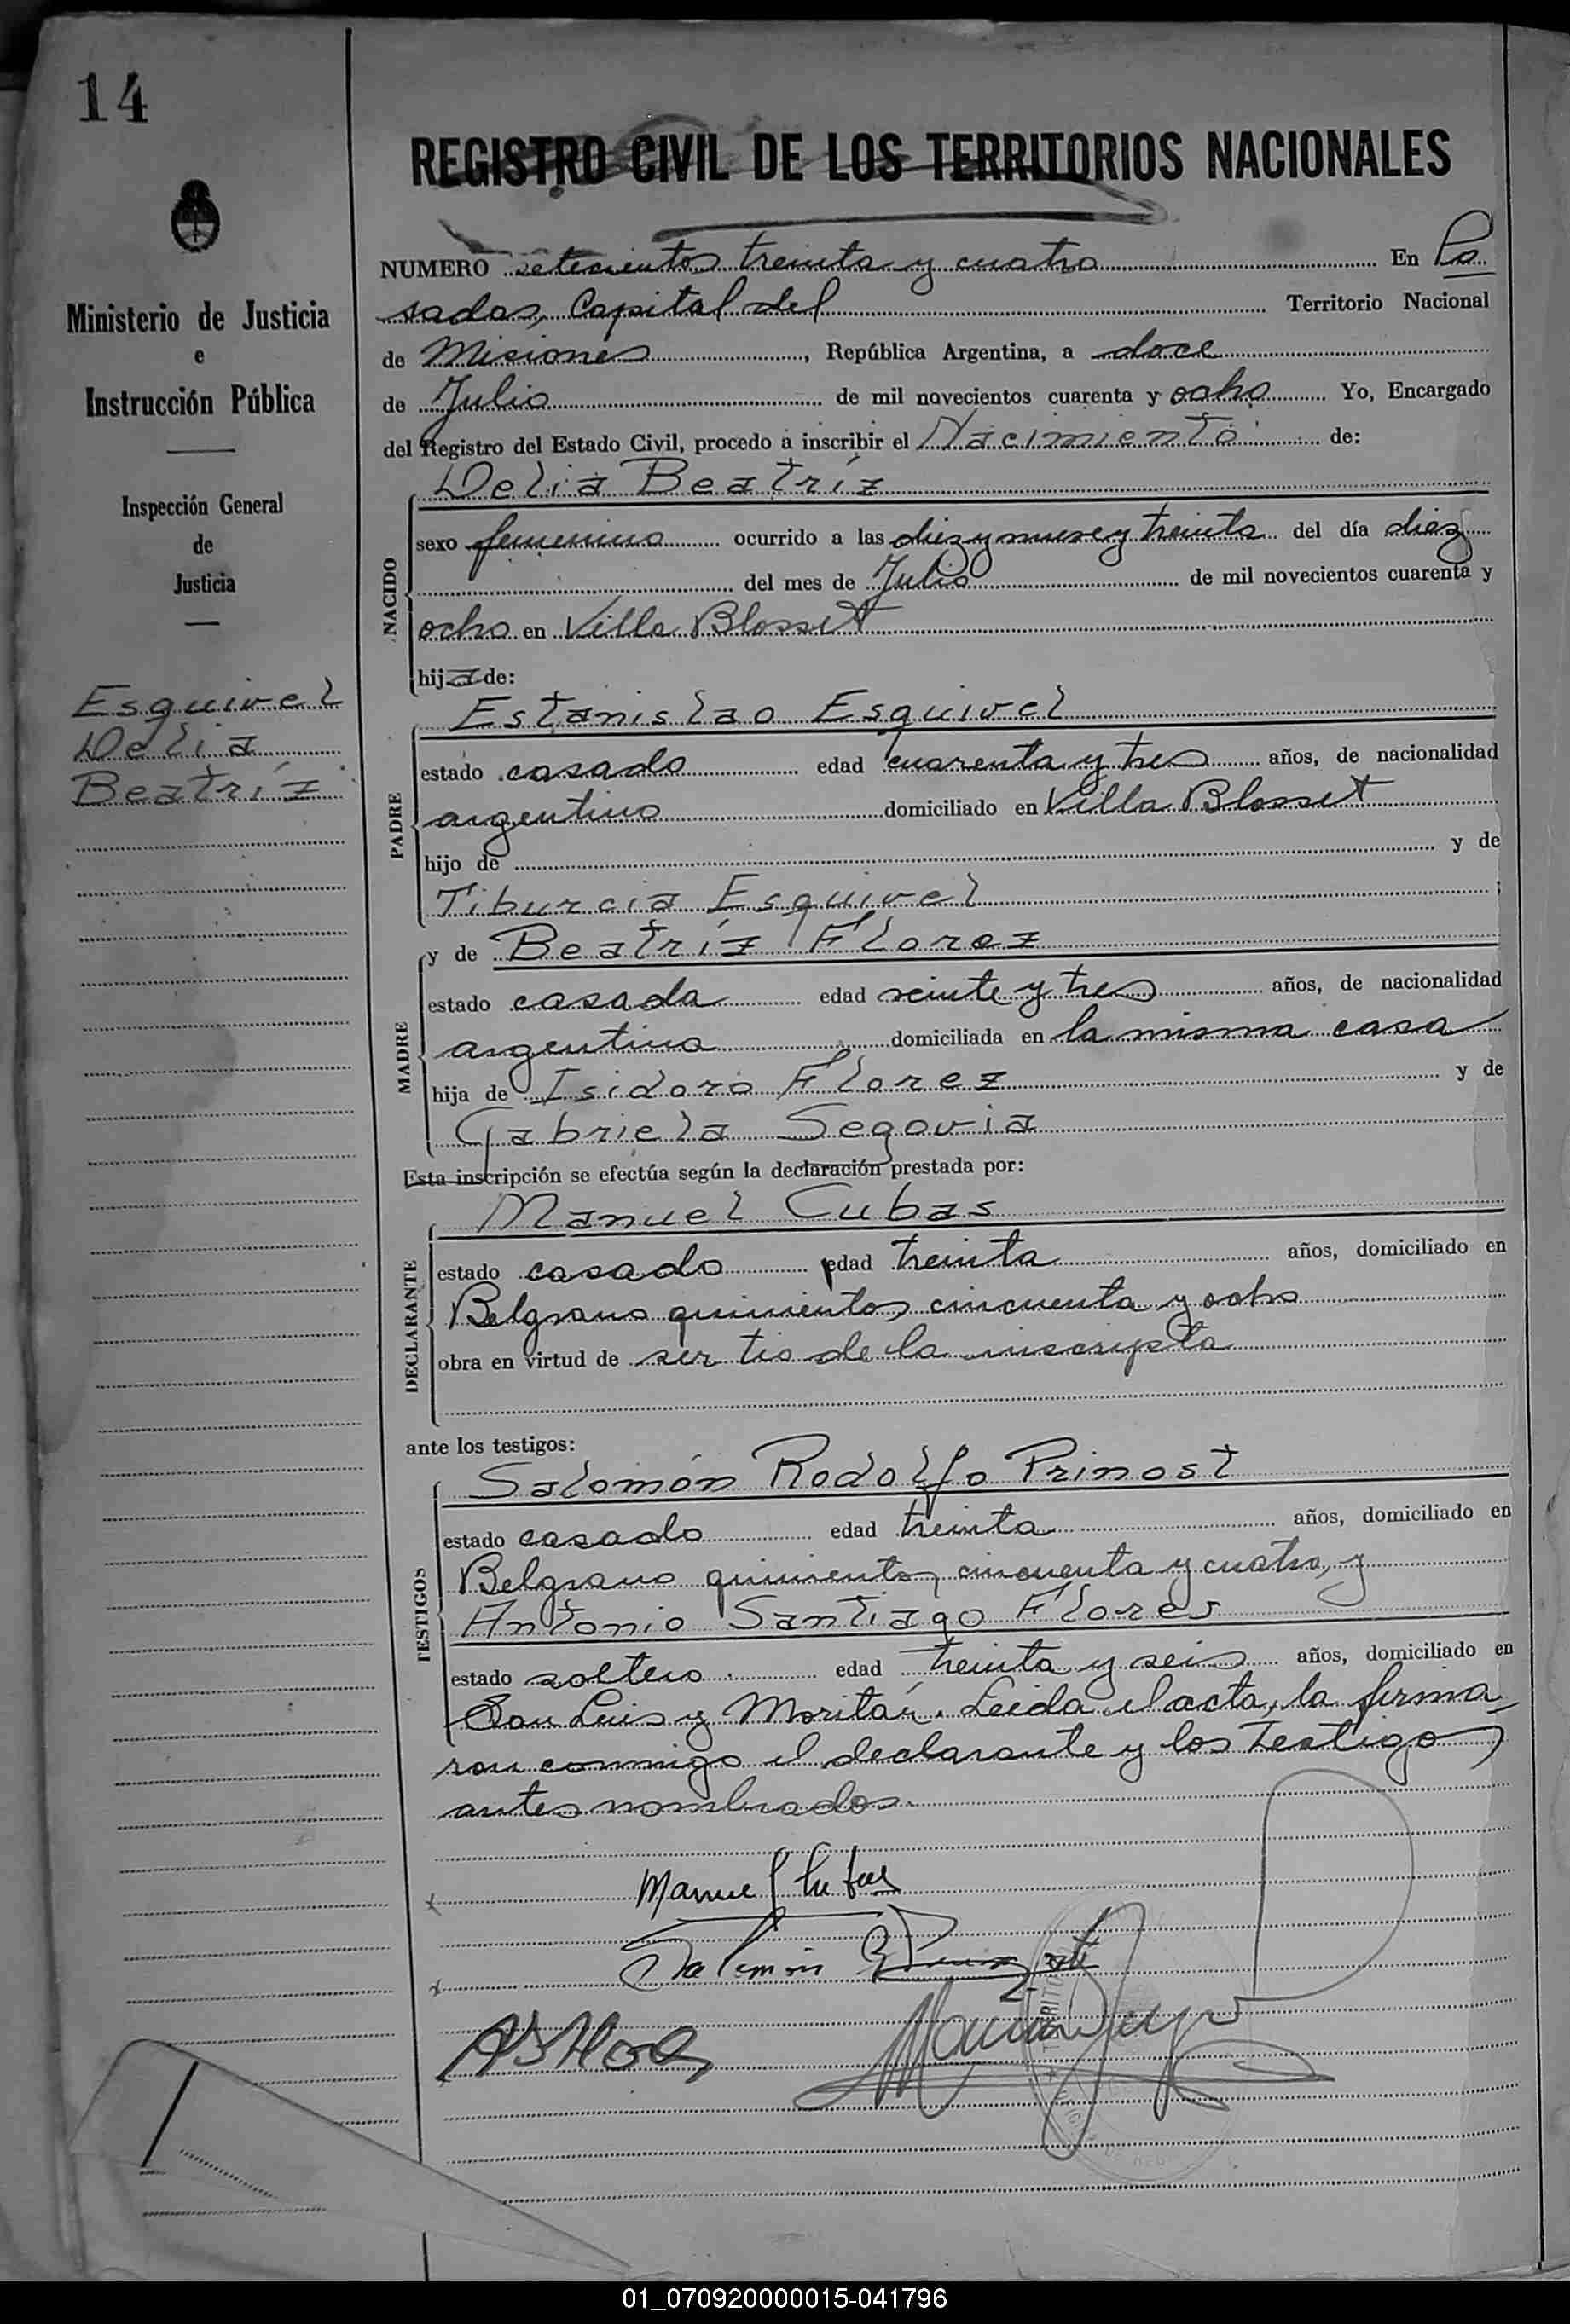 14
Ministerio de Justicia
e
Instrucción Pública
Inspección General
de
Justicia
Esquivel
Delia
Beatríz
REGISTRO CIVIL DE LOS TERRITORIOS NACIONALES
NUMERO setecientos treinta y cuatro En Po
sadas, Capital del Territorio Nacional
de Misiones, República Argentina, a doce
de Julio de mil novecientos cuarenta y ocho Yo, Encargado
del Registro del Estado Civil, procedo a inscribir el Nacimiento de:
Delia Beatríz
NACIDO
sexo femenino ocurrido a las diez y nueve y treinta del día diez
del mes de Julio de mil novecientos cuarenta y
ocho en Villa Blosset
hija de:
Estanislao Esquivel
PADRE
estado casado edad cuarenta y tres años, de nacionalidad
argentino domiciliado en Villa Blosset
hijo de y de
Tiburcia Esquivel;
y de Beatríz Florez
MADRE
estado casada edad veinte y tres años, de nacionalidad
argentina domiciliada en la misma casa
hija de Isidoro Florez y de
Gabriela Segovia
Esta inscripción se efectúa según la declaración prestada por:
Manuel Cubas
DECLARANTE
estado casado edad treinta años, domiciliado en
Belgrano quinientos cincuenta y ocho
obra en virtud de ser tio de la inscripta
ante los testigos:
Salomón Rodolfo Prinost
TESTIGOS
estado casado edad treinta años, domiciliado en
Belgrano quinientos cincuenta y cuatro, y
Antonio Santiago Flores
estado soltero edad treinta y seis años, domiciliado en
San Luis y Moritán. Leida el acta, la firma
ron conmigo el declarante y los testigos
antes nombrados.
Manuel Cubas
Salomón
01_070920000015-041796